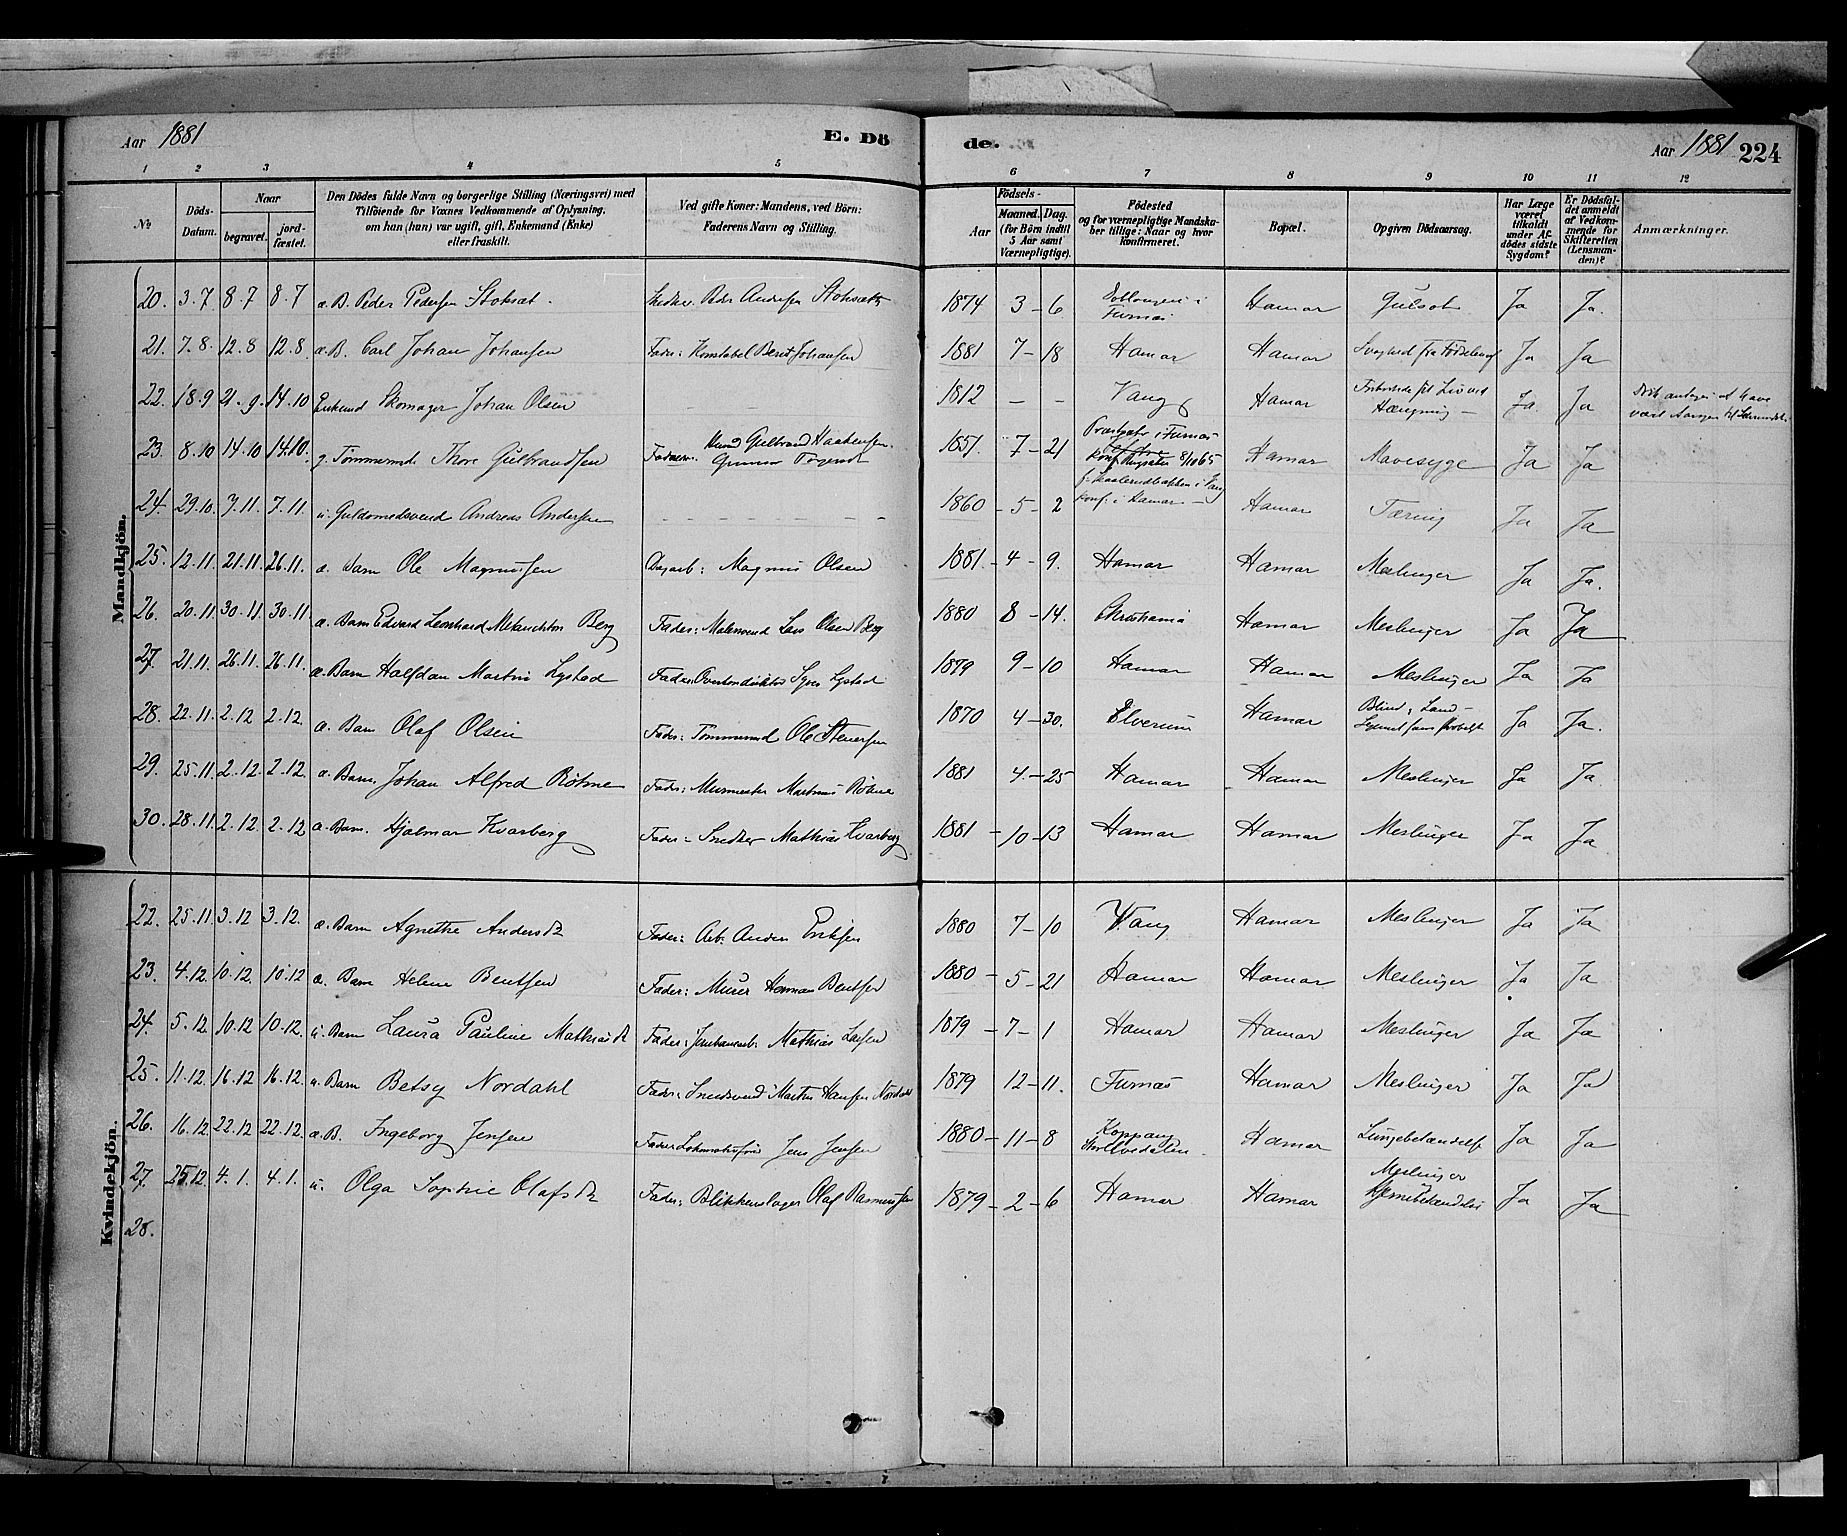 Aar 1881 E. Dö
de. Aar 1881 224
1 2 3 4 5 6 7 8 9 10 11 12
No. Döds-Datum. Naar begravet. jordfæstet. Den Dödes fulde Navn og borgerlige Stilling (Næringsvei) med Tilföiende for Voxnes Vedkommende af Oplysning, om han (hun) var ugift, gift, Enkemand (Enke) eller fraskilt. Ved gifte Koner: Mandens, ved Börn: Faderens Navn og Stilling. Födsels- Aar Maaned. Dag. (for Börn indtil 5 Aar samt Værnepligtige). Födested og for værnepligtige Mandskaber tillige: Naar og hvor konfirmeret. Bopæl. Opgiven Dödsaarsag. Har Læge været tilkaldt under Afdödes sidste Sygdom? Er Dödsfaldet anmeldt af Vedkommende for Skifteretten (Lensmanden)? Anmærkninger.
Mandkjön.
20. 3.7 8.7 8.7 æ. B. Peder Pedersen Stoksæt. Snedker Peder Andersen 1874 3 - 6 i Furnæs Hamar Gulsot Ja Ja.
21. 7.8. 12.8 12.8. æ. B. Carl Johan Johansen Fader: Konstabel Bernt Johansen 1881 7 - 18 Hamar Hamar Svaghed fra Fødselen af Ja Ja
22. 18.9 21.9. 14.10 Enkemd Skomager Johan Olsen - - - 1812 - - Vang Hamar Liv ved Hængning - Ja. Ja antages at have været
23. 8.10 14.10 14.10. g. Tømmermd Thore Gulbrandsen Gulbrand Haakensen. 1851. 7 - 21 Præstsæter i Furnæs Konf. 8/10 65 Hamar Mavesyge Ja Ja
24. 29.10. 7.11. 7.11. u. Guldsmedsvend Andreas Andersen - - - 1860 - 5 - 2 i Vang Konf. i Hamar - Hamar Tæring Ja Ja
25. 12.11. 21.11. 26.11. æ. Barn Ole Magnussen Dagarb: Magnus Olsen 1881. - 4 - 9. Hamar Hamar Meslinger Ja Ja.
26. 20.11. 30.11. 30.11. æ. Barn Edvard Leonhard Melanchton Berg Fader: Malersvend Lars Olsen Berg 1880 8 - 14. Christiania Hamar Meslinger Ja Ja
27. 21.11. 26.11. 26.11. æ. Barn Halfdan Martin Lystad Fader: Overkonduktør Syver Lystad 1879 9 - 10 Hamar Hamar Meslinger Ja Ja
28. 22.11. 2.12. 2.12. æ. Barn Olaf Olsen Fader: Tømmermd Ole Stenersen 1870 4 - 30. Elverum Hamar Blind; Ja Ja.
29. 25.11. 2.12. 2.12. æ. Barn. Johan Alfred Röhme Fader: Murmester Martinus Röhme 1881 4 - 25 Hamar Hamar Meslinger Ja Ja
30. 28.11. 2.12. 2.12 æ. Barn. Hjalmar Kvarberg Fader: Snedker Mathias Kvarberg 1881 - 10 - 13 Hamar Hamar Meslinger Ja Ja
Kvindekjön.
22. 25.11 3.12 3.12. æ. Barn Agnethe Andersd. Fader: Arb. Anders Eriksen 1880 7 - 10 Vang Hamar Meslinger Ja Ja
23. 4.12. 10.12. 10.12 æ. Barn Helene Bentsen Fader: Murer Herman Bentsen 1880 - 5 - 21 Hamar Hamar Meslinger Ja Ja
24. 5.12. 10.12 10.12. u. Barn Laura Pauline Mathiasd. Fader: Jernbanearb. Mathias Larsen 1879 - 7 - 1 Hamar Hamar Meslinger Ja Ja
25. 11.12. 16.12. 16.12. u. Barn Betsy Nordahl Fader: Snedsvend Martin Hansen Nordahl 1879 12 - 11. Furnæs Hamar Meslinger Ja Ja
26. 16.12. 22.12 22.12. æ. B. Ingeborg Jensen Fader: Lokomotivfører Jens Jensen 1880 - 11 - 8 Koppang StorElvedalen. Hamar Lungebetændelse Ja Ja
27. 25.12. 4.1. 4.1. u. Olga Sophie Olafsd. Fader: Blikkenslager Olaf Rasmussen 1879 - 2 - 6 Hamar Hamar Meslinger Hjernebetændelse Ja Ja
28.